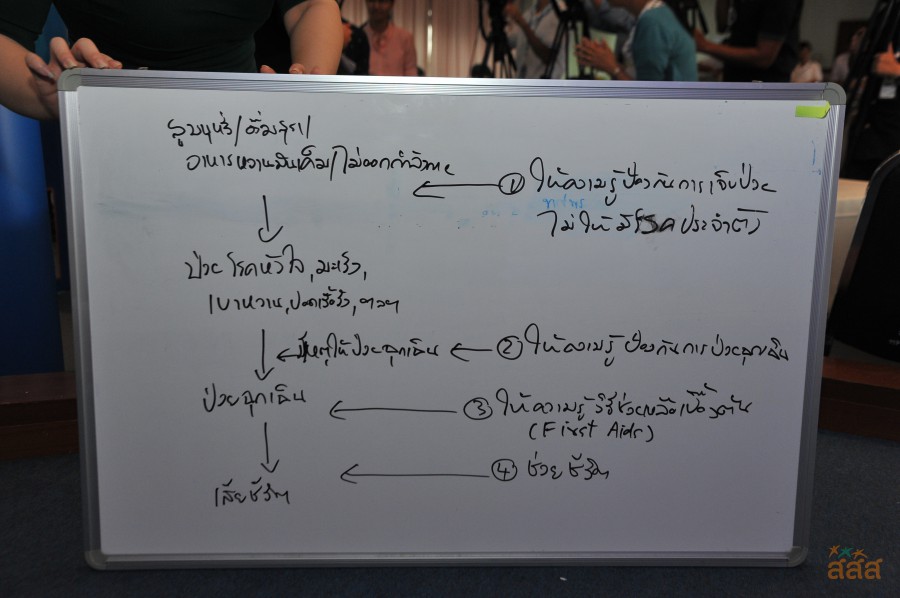 สูบบุหรี่/ดื่มสุรา/
อาหารหวานมันเค็ม/ไม่ออกกำลังกาย
① ให้ความรู้ป้องกันการเจ็บป่วย
ไม่ให้มีโรคประจำตัว
ป่วยโรคหัวใจ,มะเร็ง,
เบาหวาน,ปอดเรื้อรัง,ฯลฯ
เหตุให้ป่วยฉุกเฉิน
② ให้ความรู้ป้องกันการป่วยฉุกเฉิน
ป่วยฉุกเฉิน
③ ให้ความรู้วิธีช่วยเหลือเบื้องต้น
(First Aids)
④ ช่วยชีวิต
เสียชีวิต
สสส